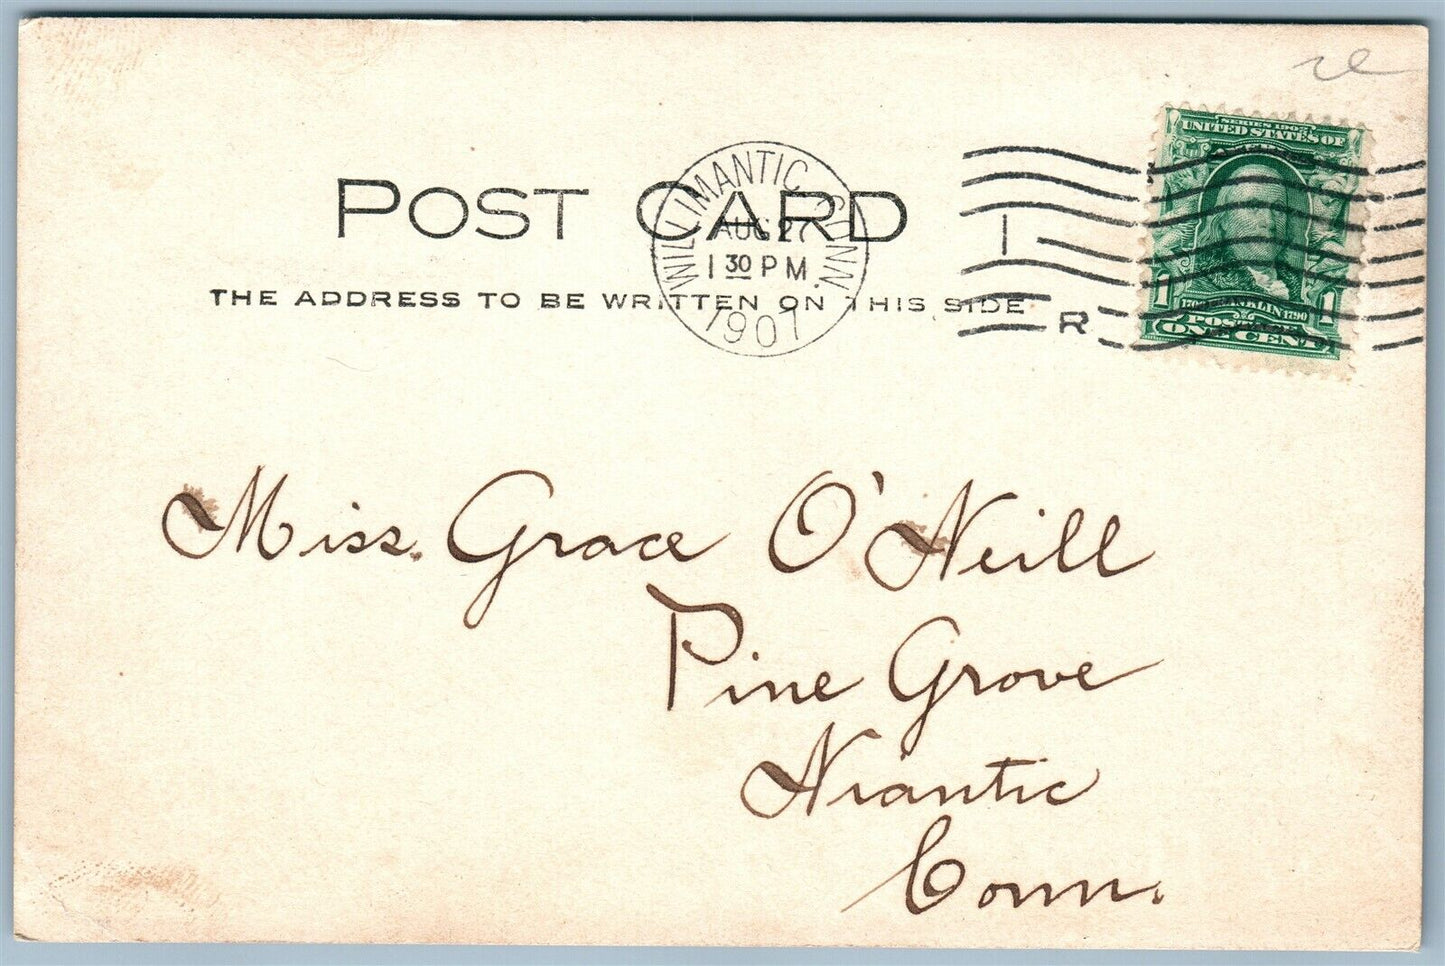 POST CARD
THE ADDRESS TO BE WRITTEN ON THIS SIDE
WILLIMANTIC CONN.
AUG 27
1 30 PM
1907
1
R
SERIES 1902
UNITED STATES OF
1 1
FRANKLIN 1790
POSTAGE
ONE CENT
Miss. Grace O'Neill
Pine Grove
Niantic
Conn.